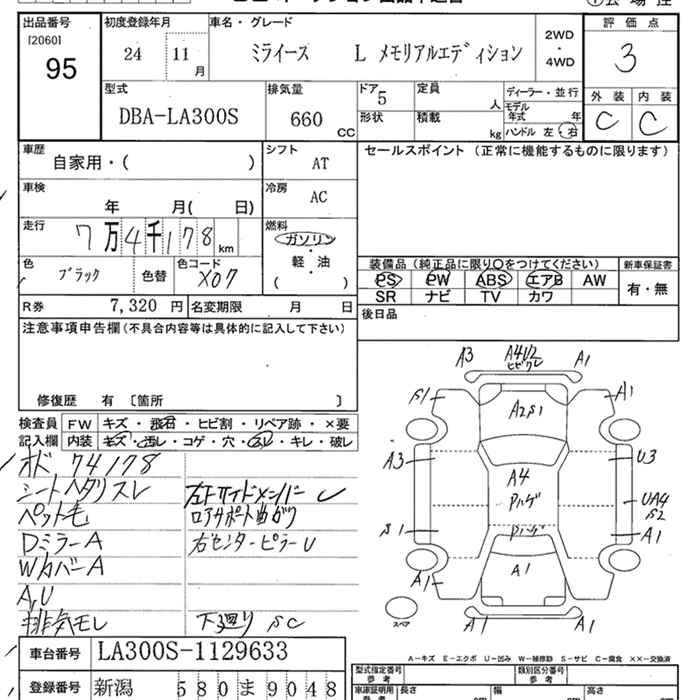 出品番号 初度登録年月 車名・グレード 評価点
[2060]
95 24 11月 ミライース L メモリアルエディション 2WD・4WD 3
型式 排気量 ドア 定員 ディーラー・並行 外装 内装
DBA-LA300S 660CC 5 人 モデル年式 年 C C
形状 積載 kg ハンドル 左・右
車歴 シフト セールスポイント (正常に機能するものに限ります)
自家用・( ) AT
車検 冷房
年 月( 日) AC
走行 燃料
7万4千178km ガソリン・軽・油
( )
色 色コード
ブラック 色替 X07
装備品(純正品に限り○をつけてください) 新車保証書
PS PW ABS エアB AW 有・無
SR ナビ TV カワ
R券 7,320円 名変期限 月 日
後日品
注意事項申告欄(不具合内容等は具体的に記入して下さい)
修復歴 有 〔箇所 〕
検査員記入欄 FW キズ・飛石・ヒビ割・リペア跡・×要
内装 キズ・汚レ・コゲ・穴・スレ・キレ・破レ
オド 74178
シートヘタリスレ
ペット毛
DミラーA
WカバーA
A,U
排気モレ
左右サイドメンバー
ロアサポート曲がり
右センターピラーU
下廻り SC
A3 A4U2 A1
ヒビワレ
S1 A1
A2S1
A3 A4 U3
Pハゲ UA4
S2
S1 Pハゲ A1
A1 A1
スペア A1 A1
A-キズ E-エクボ U-凹み W-補修跡 S-サビ C-腐食 ××-交換済
車台番号 LA300S-1129633
型式指定番号 参考 類別区分番号 参考
登録番号 新潟 580 ま 9048
車庫証明用 参考 長さ cm 幅 cm 高さ cm